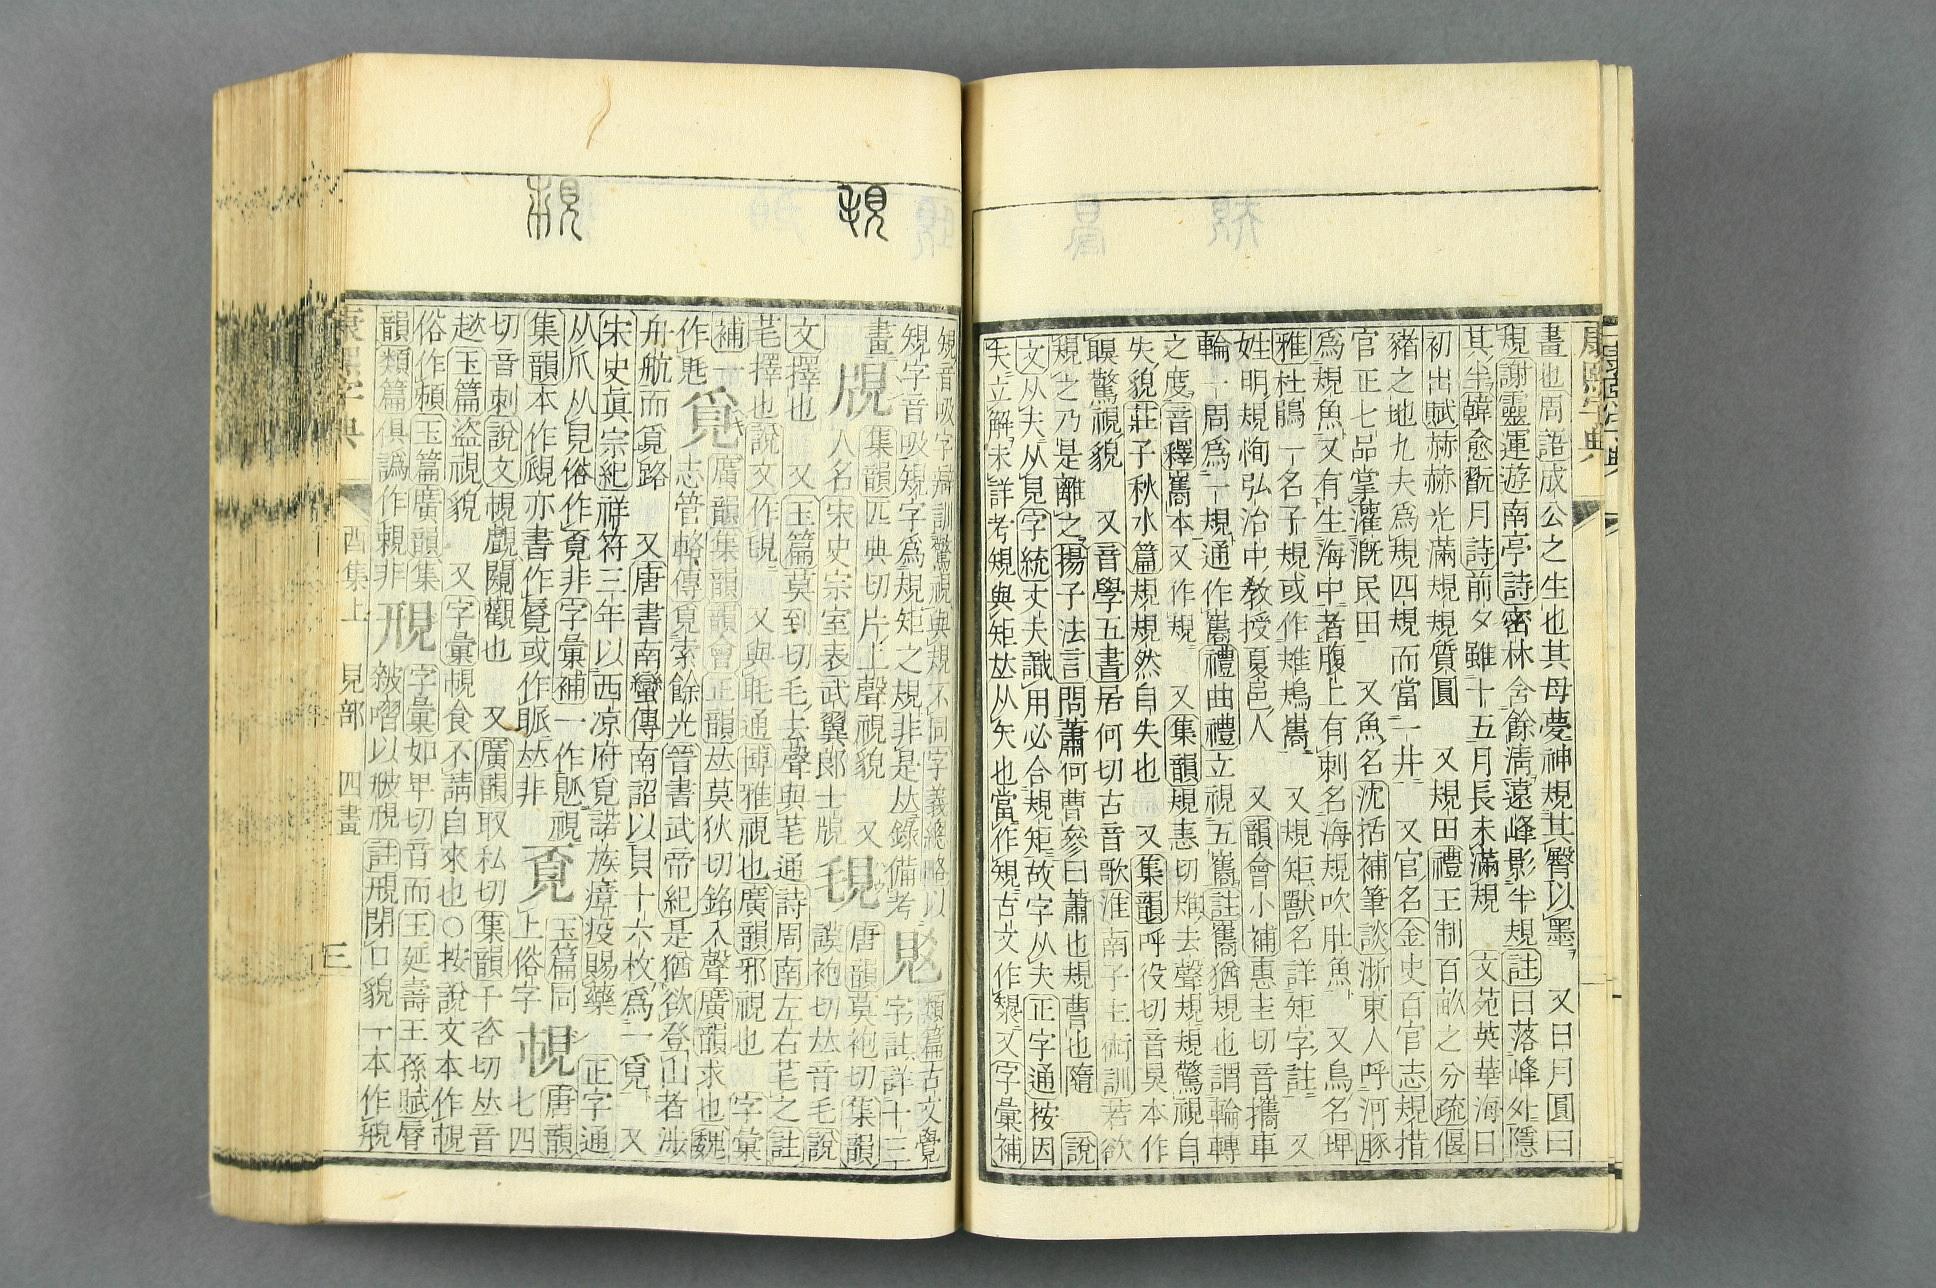 畫也周語成公之生也其母夢神規其臀以墨 又日月圓曰
規謝靈運遊南亭詩密林含餘淸遠峰影半規註日落峰外隱
其半韓愈翫月詩前夕雖十五月長未滿規 文苑英華海日
初出賦赫赫光滿規規質圓 又規田禮王制百畝之分疏偃
豬之地九夫爲規四規而當一井 又官名金史百官志規措
官正七品掌灌漑民田 又魚名沈括補筆談浙東人呼河豚
爲規魚又有生海中者腹上有刺名海規吹肚魚 又鳥名埤
雅杜鵑一名子規或作雉鳺巂 又規矩獸名詳矩字註 又
姓明規恂弘治中敎授夏邑人 又韻會小補惠圭切音攜車
輪一周爲一規通作巂禮曲禮立視五巂註巂猶規也謂輪轉
之度音釋巂本又作規 又集韻規恚切雉去聲規規驚視自
失貌莊子秋水篇規規然自失也 又集韻呼役切音狊本作
瞁驚視貌 又音學五書居何切古音歌淮南子主術訓若欲
規之乃是離之揚子法言問蕭何曹參曰蕭也規曹也隨 說
文从夫从見字統丈夫識用必合規矩故字从夫正字通按因
夫立解未詳考䂓與矩𠀤从矢也當作䂓古文作槼又字彙補
䂓音吸字辯訓驚視與規不同字義總略以
䂓字音吸䂓字爲規矩之規非是𠀤錄備考 類篇古文覺
字註詳十三
畫 覑 集韻匹典切片上聲視貌 又
人名宋史宗室表武翼郞士覑 覒 唐韻莫袍切集韻
謨袍切𠀤音毛說
文擇也 又玉篇莫到切毛去聲與芼通詩周南左右芼之註
芼擇也說文作覒 又與眊通博雅視也廣韻邪視也 字彙
補一
作覓 廣韻集韻韻會正韻𠀤莫狄切銘入聲廣韻求也魏
志管輅傳覓索餘光晉書武帝紀是猶欲登山者涉
舟航而覓路 又唐書南蠻傳南詔以貝十六枚爲一覓 又
宋史眞宗紀祥符三年以西凉府覓諾族瘴疫賜藥 正字通
从爪从見俗作覔非字彙補一作覛視 覔 玉篇同
上俗字 唐韻
七四
集韻本作覛亦書作脣或作脈𠀤非
切音刺說文覗覰闚觀也 又廣韻取私切集韻千咨切𠀤音
趑玉篇盜視貌 又字彙覗食不請自來也○按說文本作覗
俗作頻玉篇廣韻集
韻類篇俱譌作親非 字彙如甲切音而王延壽王孫賦脣
註閉口貌一本作
康熙字典 酉集上 見部 四畫 三
康熙字典